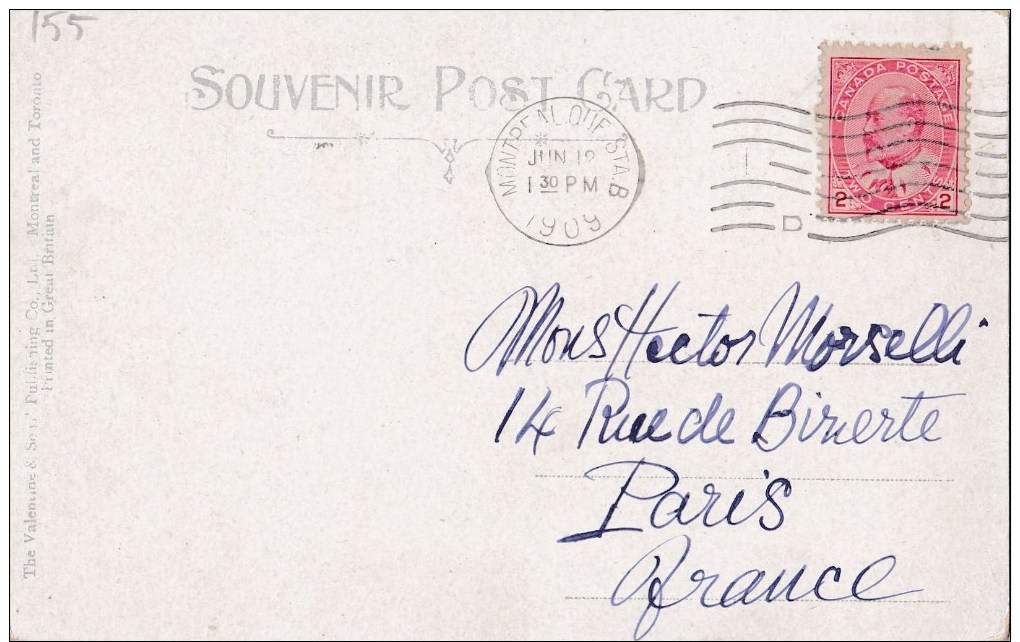 155
SOUVENIR POST CARD
The Valentine & Sons' Publishing Co., Ltd., Montreal and Toronto
Printed in Great Britain
MONTREAL. QUE. STA. B
JUN 12
1 30 PM
1909
D
CANADA POSTAGE
2 TWO CENTS 2
Mons Hector Morselli
14 Rue de Bizerte
Paris
France